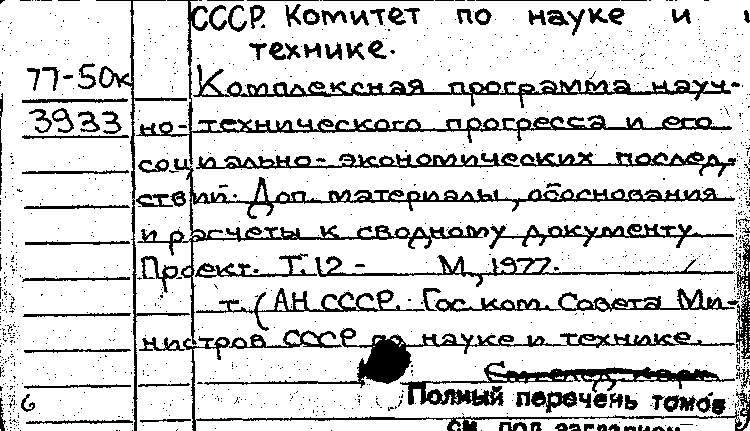 СССР. Комитет по науке и
технике.
77-50к Комплексная программа науч-
3933 но-технического прогресса и его
социально-экономических послед-
ствий. Доп. материалы, обоснования
и расчеты к сводному документу.
Проект. Т. 12 - М., 1977.
т. (АН СССР. Гос. ком. Совета Ми-
нистров СССР по науке и технике.
6 Полный перечень томов
см. под заглавием